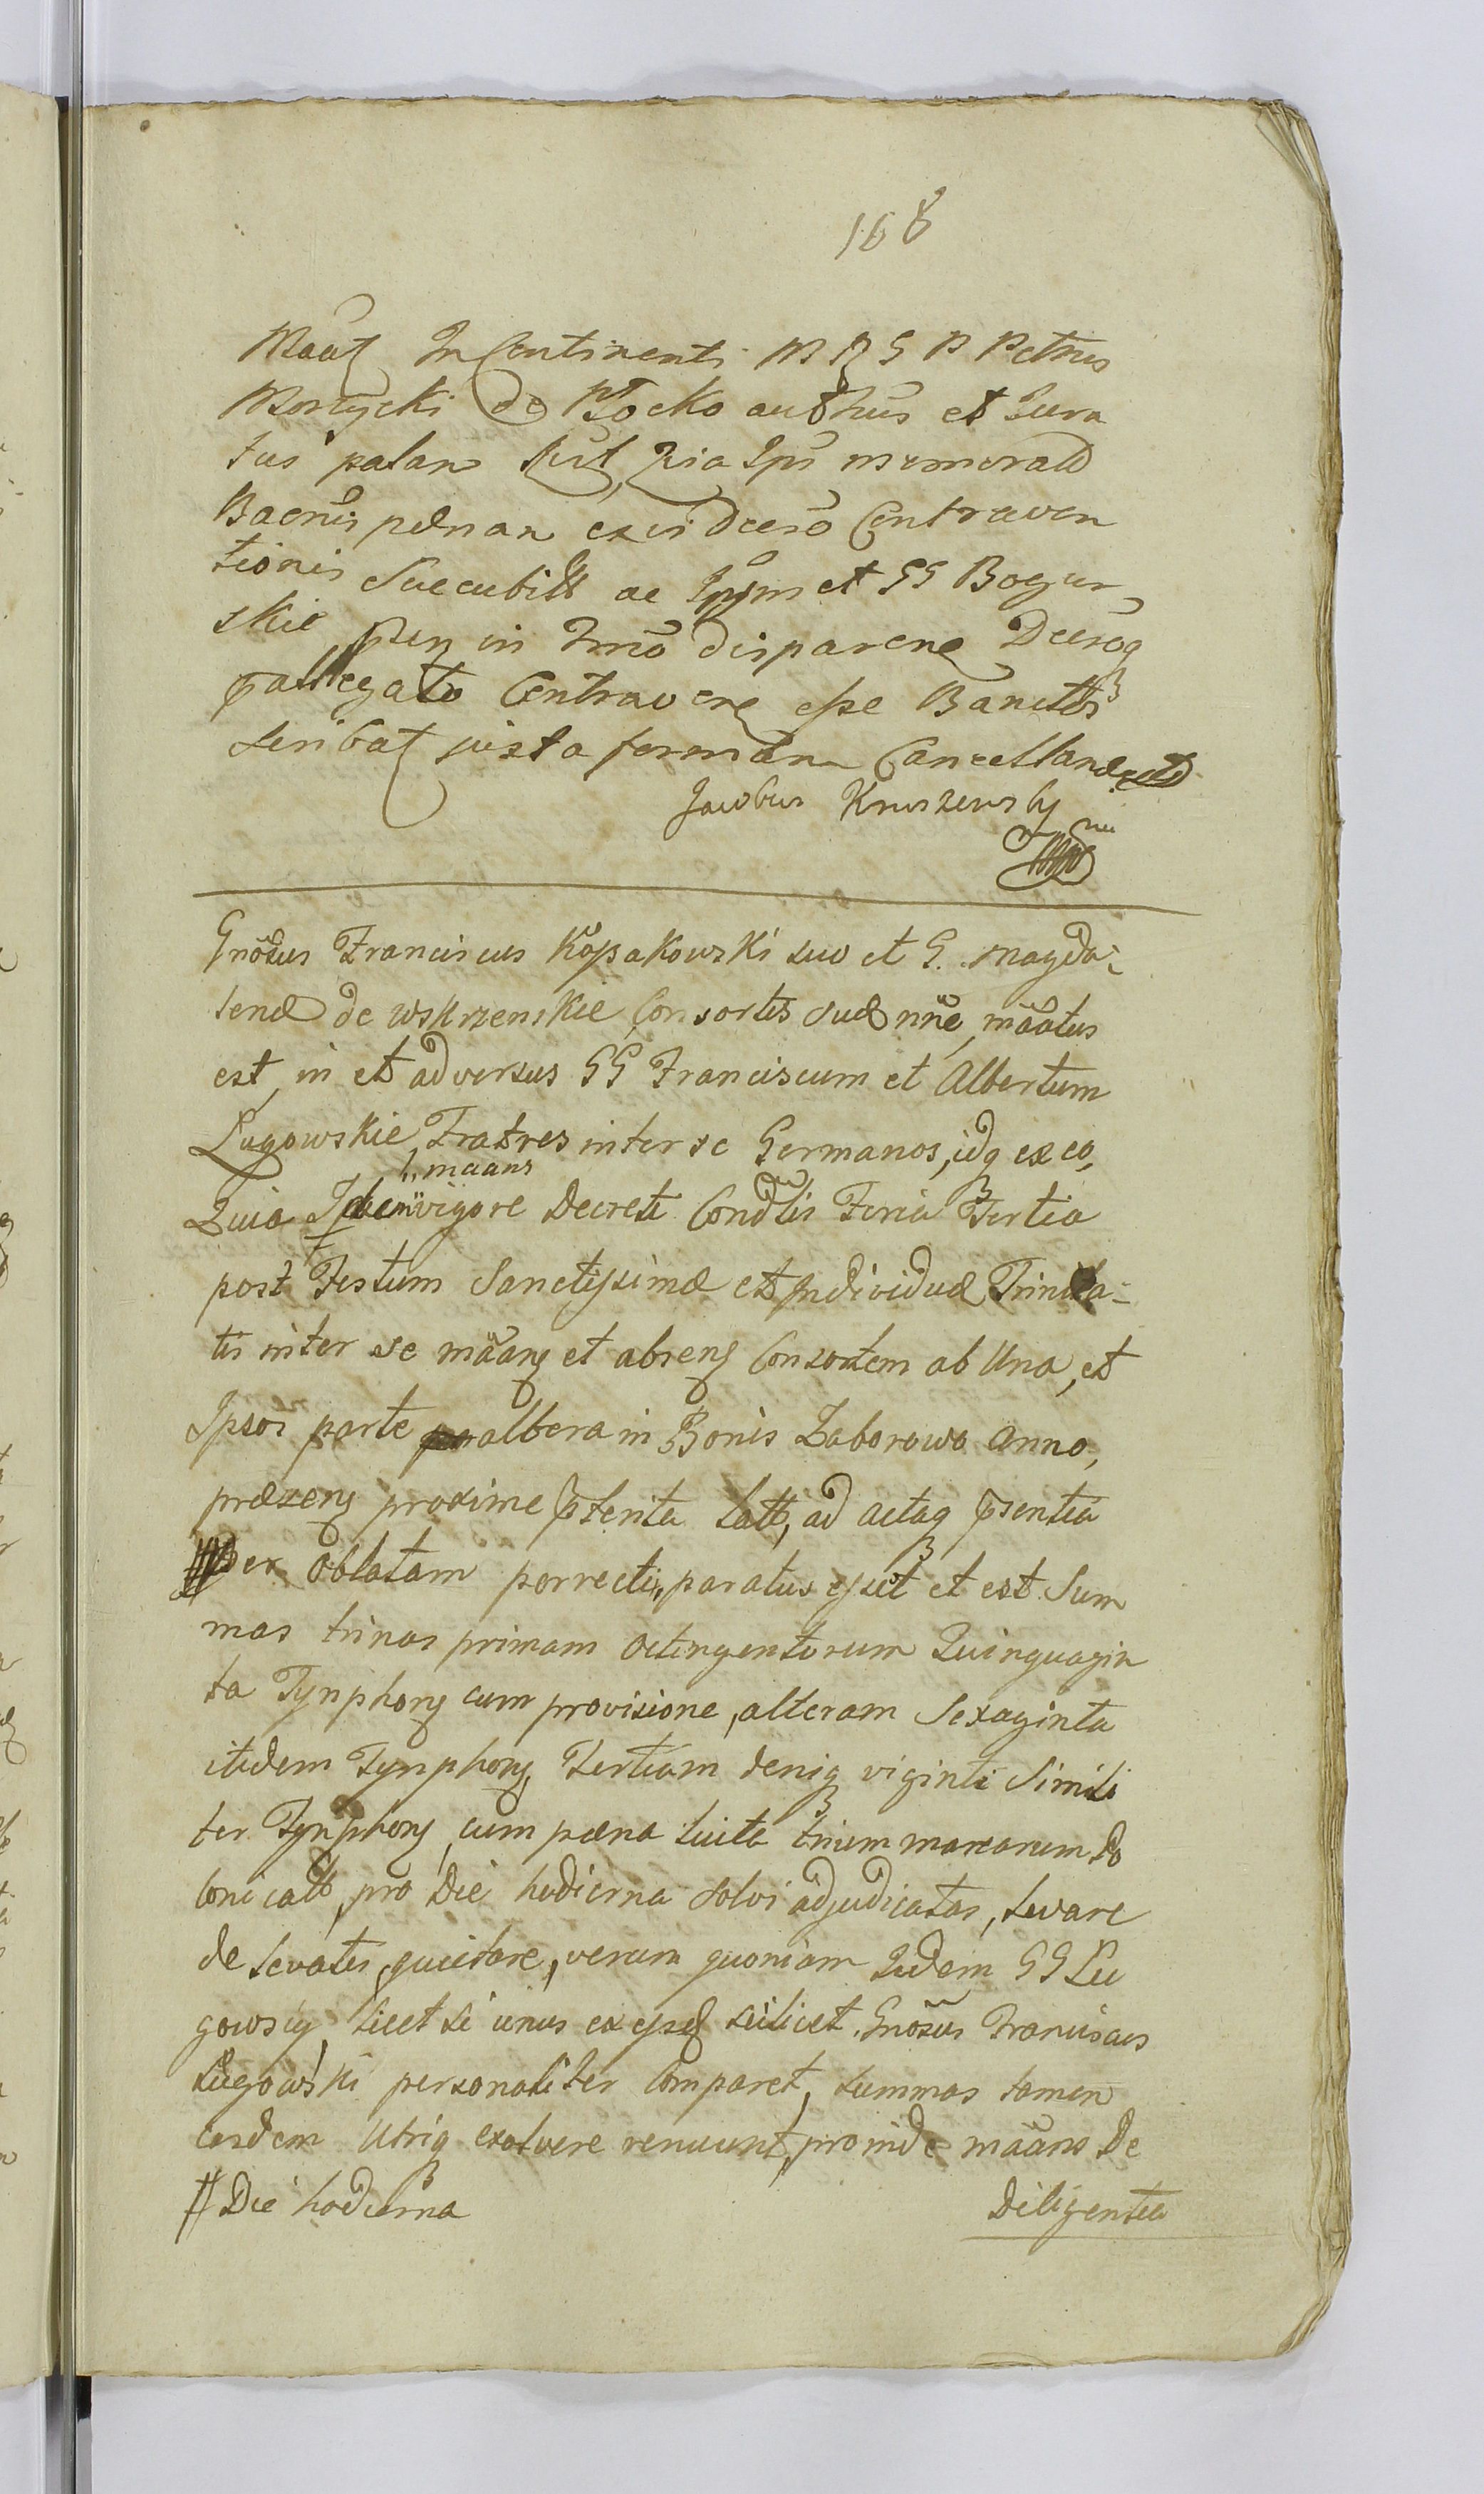 168
Maat In Continenti M R G P Petrus
Morzycki de Płocko authus et Jura
tus palam Quia Ips memorato
Banis pœnam ex Decro Contraven
tionis Succubitt ac Ipsm et GG Bogur
skie, in Trno disparene Decroq
pallegato Contravene esse Banctos
scribat juxta formam Cancellandi
Jacobus Kruszewsky
mm
Gnosus Franciscus Kossakowski suo et G. Magda:
lenæ de Wskrzenskie Consortis suæ nne, mäatus
est, in et adversus GG Franciscum et Albertum
Lugowskie, Fratres inter se Germanos, idq ex eo,
h. maans
Quia Idem vigore Decreti Condlis Feria Tertia
post Festum Sanctissimæ et Individuæ Trinita-
tis inter se mäang et absens Consortem ab Una, et
Ipsos parte altera in Bonis Zaborowo Anno,
præsens proxime pterita latt, ad Actaq psentia
per Oblatam porrecti, paratus esset et est Sum
mas trinas primam Octingentorum Quinquagin
ta Tynphons cum provisione, alteram Sexaginta
itidem Tynphons, Tertiam deniq viginti Simili
ter Tynphons, cum pœna luita trium marcarum Po
lonicatt, pro Die hodierna solvi adjudicatas, levare
de levatis, quietare, verum quoniam Iidem GG Lu
gowscy, licet si unus ex ejsd scilicet Gnosus Franciscus
Lugowski personaliter Comparet, summas tamen
easdem Utriq exolvere renuunt, proinde mäans De
# Die hodierna
Diligentia